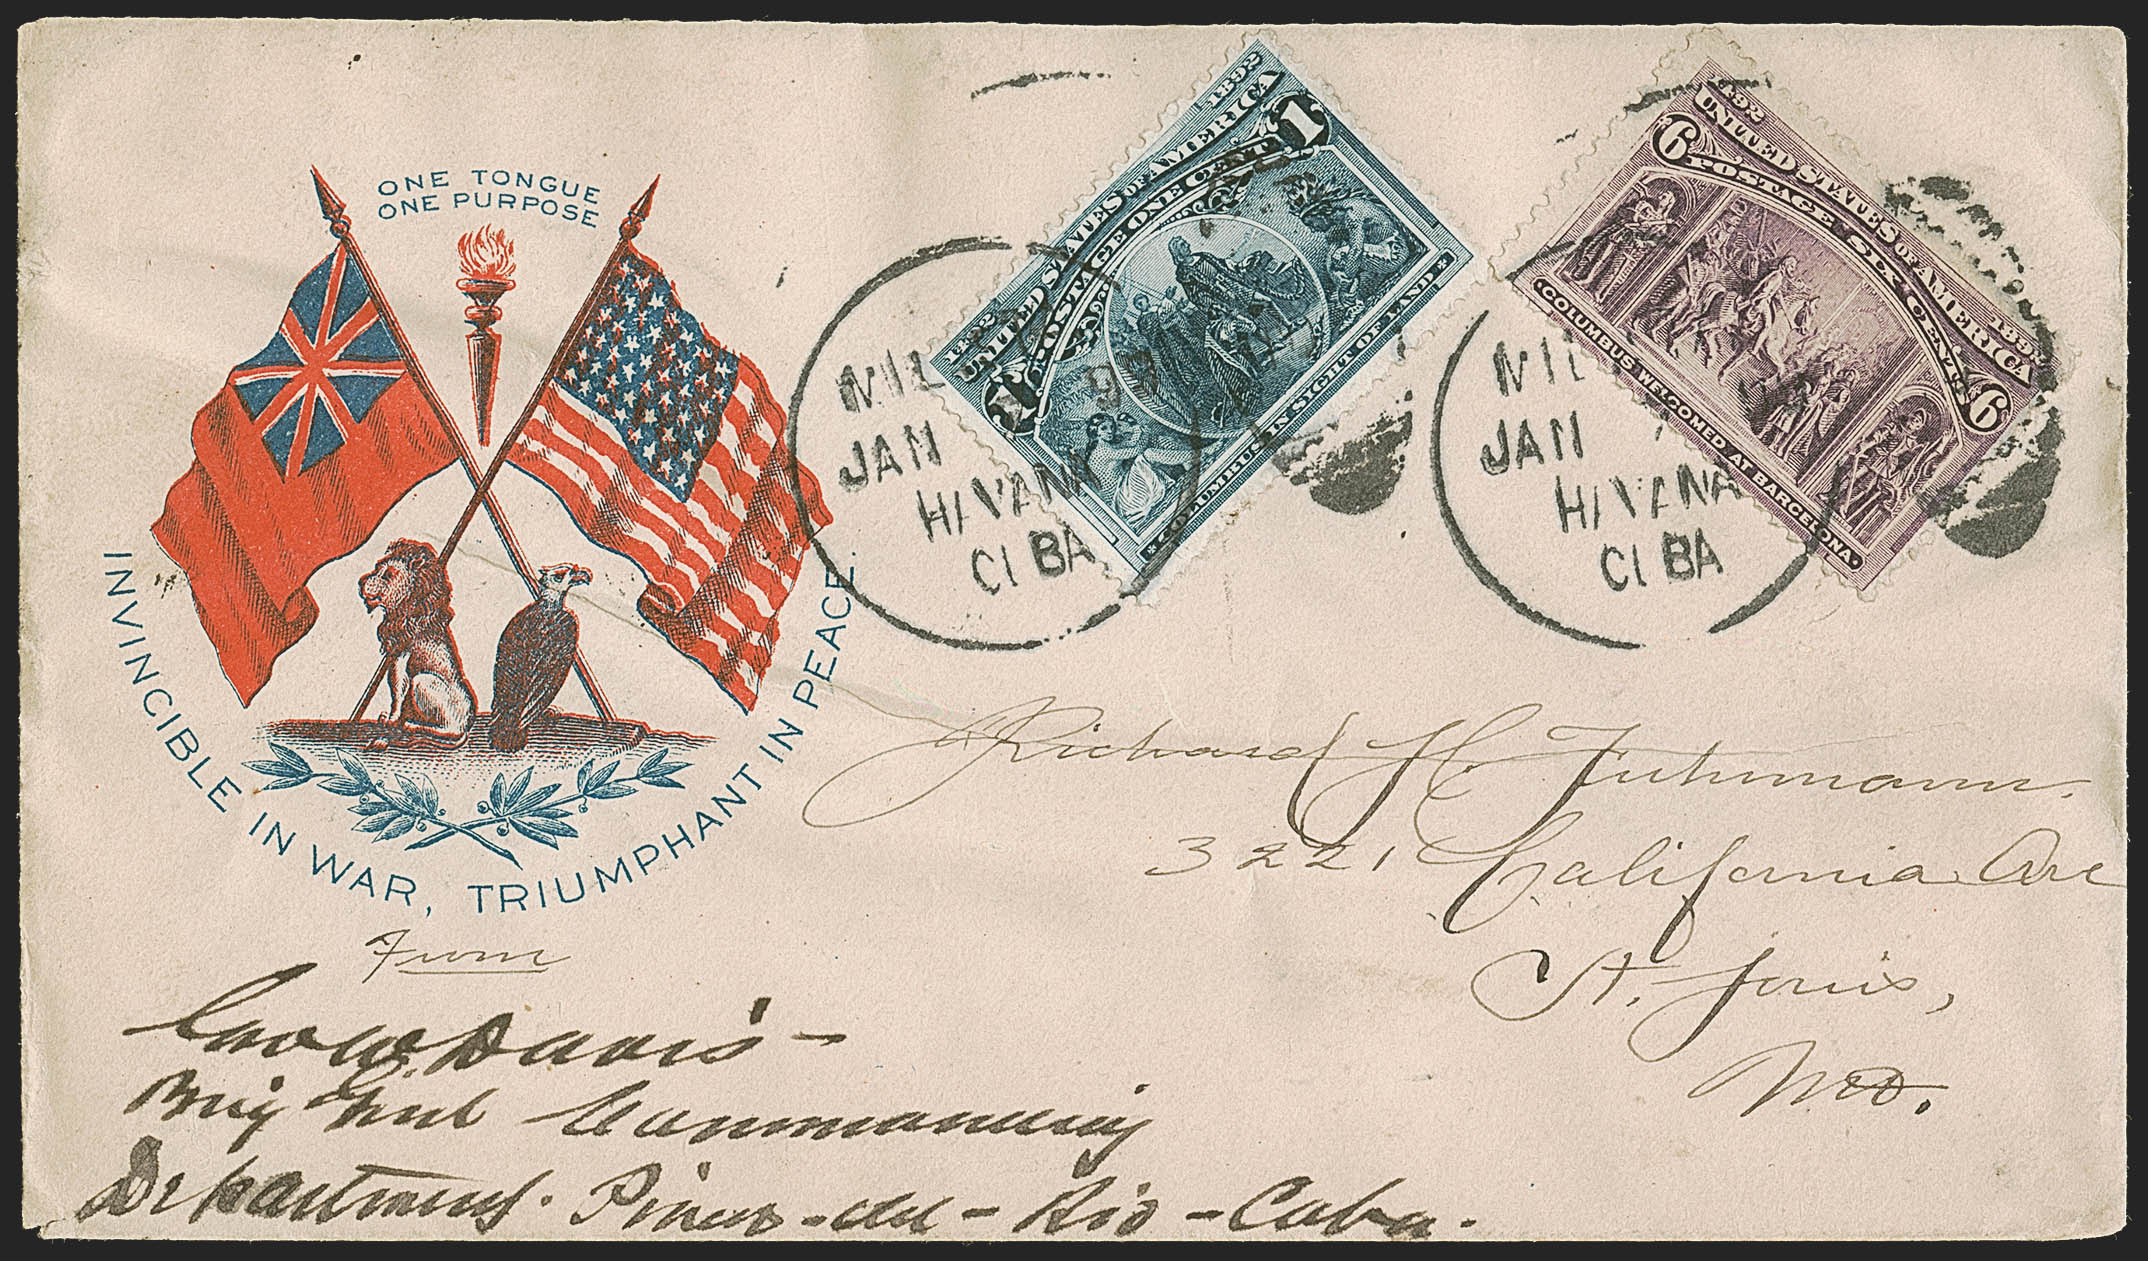 ONE TONGUE
ONE PURPOSE
INVINCIBLE IN WAR, TRIUMPHANT IN PEACE
1492 1892
UNITED STATES OF AMERICA
POSTAGE ONE CENT
1 1
COLUMBUS IN SIGHT OF LAND
1492 1892
UNITED STATES OF AMERICA
6 POSTAGE SIX CENTS 6
COLUMBUS WELCOMED AT BARCELONA
MIL
JAN
HAVANA
CUBA
MIL
JAN
HAVANA
CUBA
Richard H. Fuhrmann.
3221 California Ave
St. Louis,
Mo.
From
Geo W Davis
Brig Genl Commanding
Department. Pinar-del-Rio-Cuba.